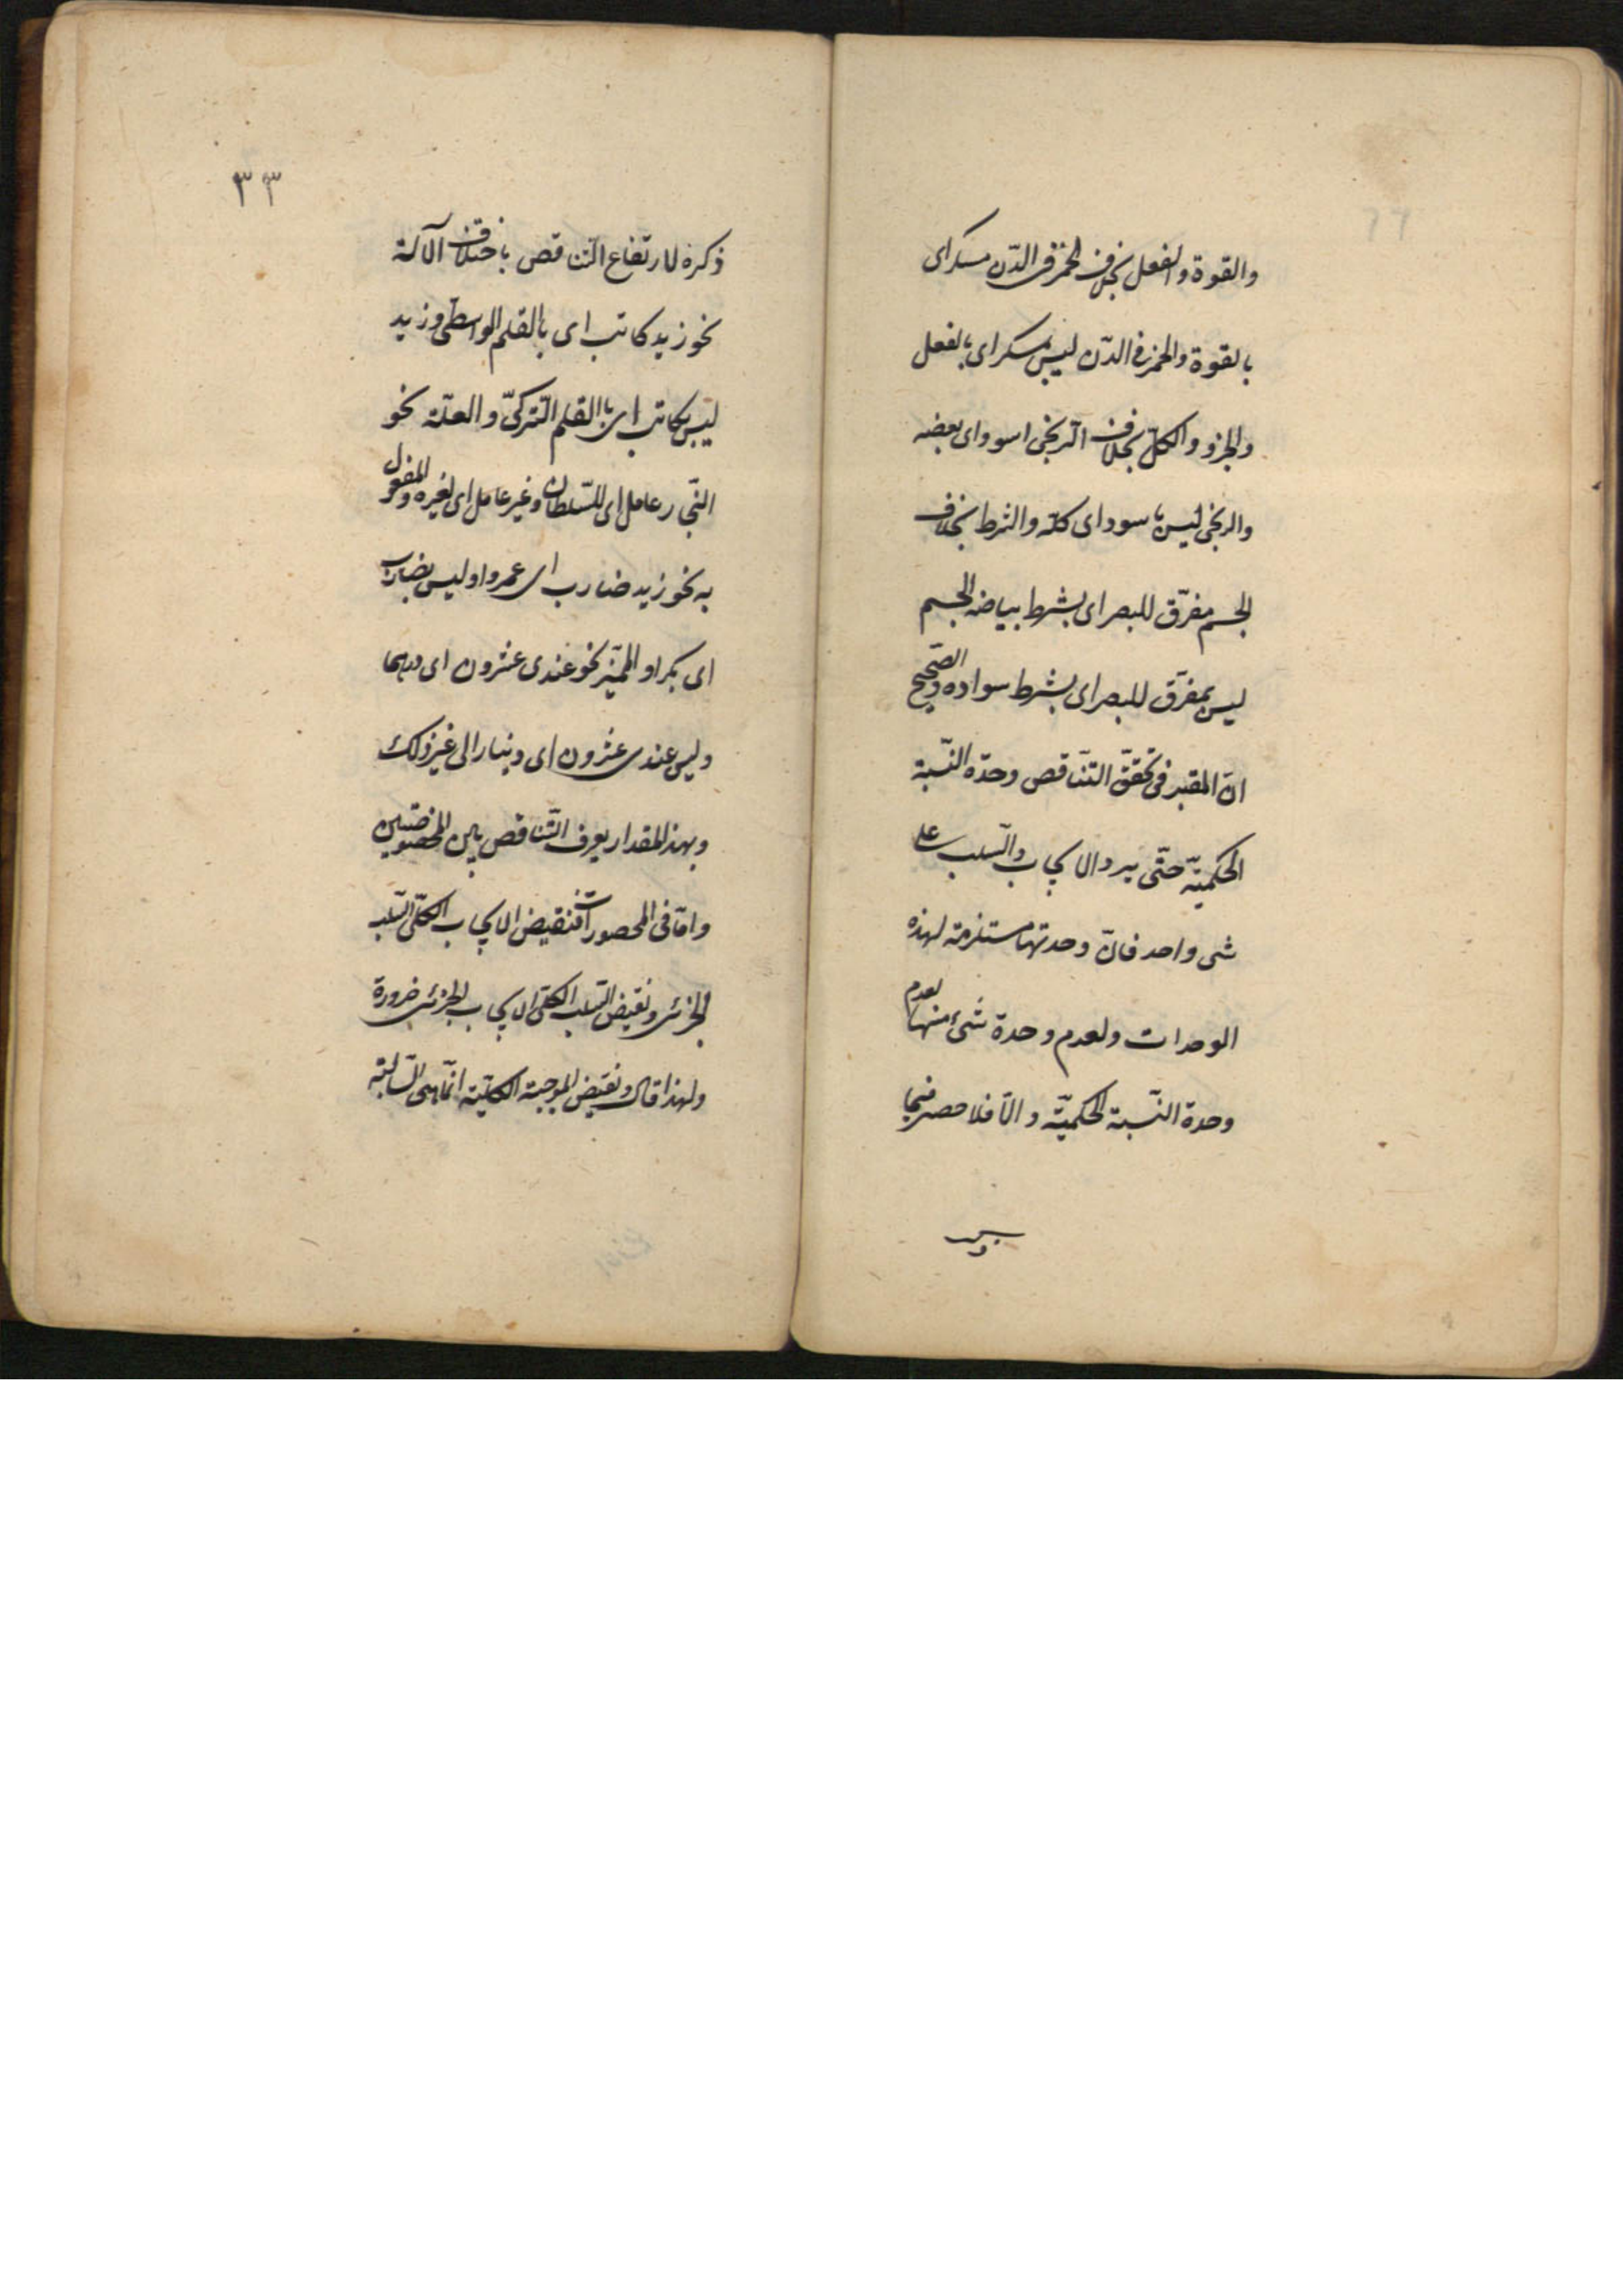 والقوة والفعل بخلاف الخمر فى الدّن مسكر اى
بالقوة والخمر فى الدّن ليس بمسكر اى بالفعل
والجزو والكلّ بخلاف الزنجى اسود اى بعضه
والزنجى ليس باسود اى كلّه والشرط بخلاف
الجسم مفرّق للبصر اى بشرط بياضه الجسم
ليس بمفرّق للبصر اى بشرط سواده والصّحيح
انّ المعتبر فى تحقّق التّناقض وحدة النّسبة
الحكميّة حتّى يرد الايجاب والسّلب على
شى واحد فانّ وحدتها مستلزمة لهذه
الوحدات ولعدم وحدة شئ منها لعدم
وحدة النّسبة الحكميّة والّا فلا حصر فيما
ذكره لارتفاع التّناقض باختلاف الآلة
نحو زيد كاتب اى بالقلم الواسطى وزيد
ليس بكاتب اى باالقلم التّركىّ والعلّة نحو
النّجار عامل اى للسّلطان وغير عامل اى لغيره والمفعول
به نحو زيد ضارب اى عمروا وليس بضارب
اى بكرا والمميّز نحو عندى عشرون اى درهما
وليس عندى عشرون اى دينارا الى غير ذلك
وبهذا المقدار يعرف التّناقض بين المخصوصتين
وامّا فى المحصورات فنقيض الايجاب الكلّى السّلب
الجزئى ونقيض السّلب الكلّى الايجاب الجزئى ضرورة
ولهذا قال ونقيض الموجبة الكلّيّة انّما هى السّالبة
٣٣